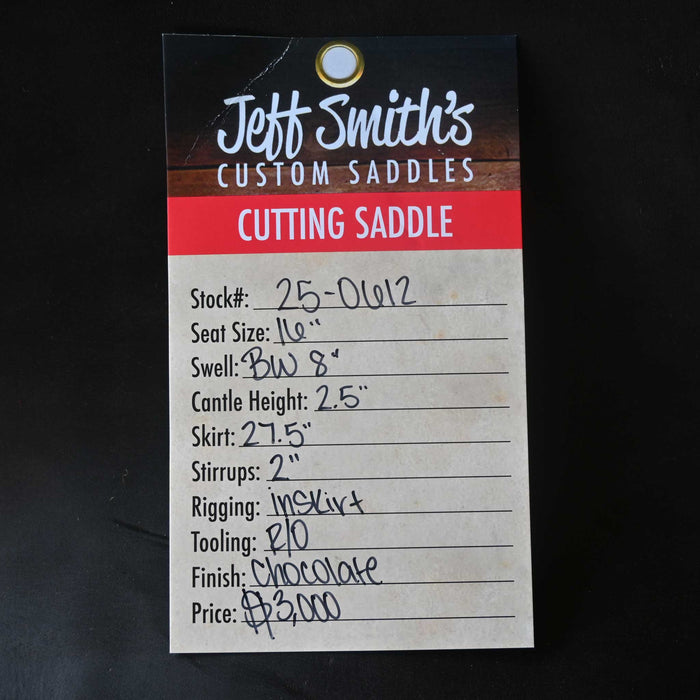 Jeff Smith's
CUSTOM SADDLES
CUTTING SADDLE
Stock#: 25-0612
Seat Size: 16"
Swell: BW 8"
Cantle Height: 2.5"
Skirt: 27.5"
Stirrups: 2"
Rigging: inskirt
Tooling: R/O
Finish: Chocolate
Price: $3,000